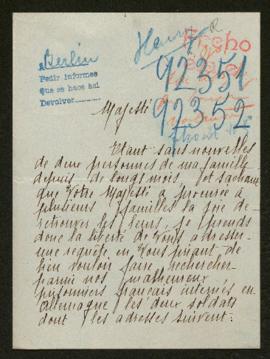 Berlin
Pedir informes
que se hace así
Devolver
Hecho
92351
92352
Majesté
Etant sans nouvelles
de deux personnes de ma famille
depuis de longs mois, et sachant
que Votre Majesté a procurée à
plusieurs familles la joie de
retrouver les leurs, je prends
donc la liberté de vous adresser
une requête, en Vous priant de
bien vouloir faire rechercher
parmi nos malheureux
prisonniers français internés en
Allemagne les deux soldats
dont les adresses suivent: